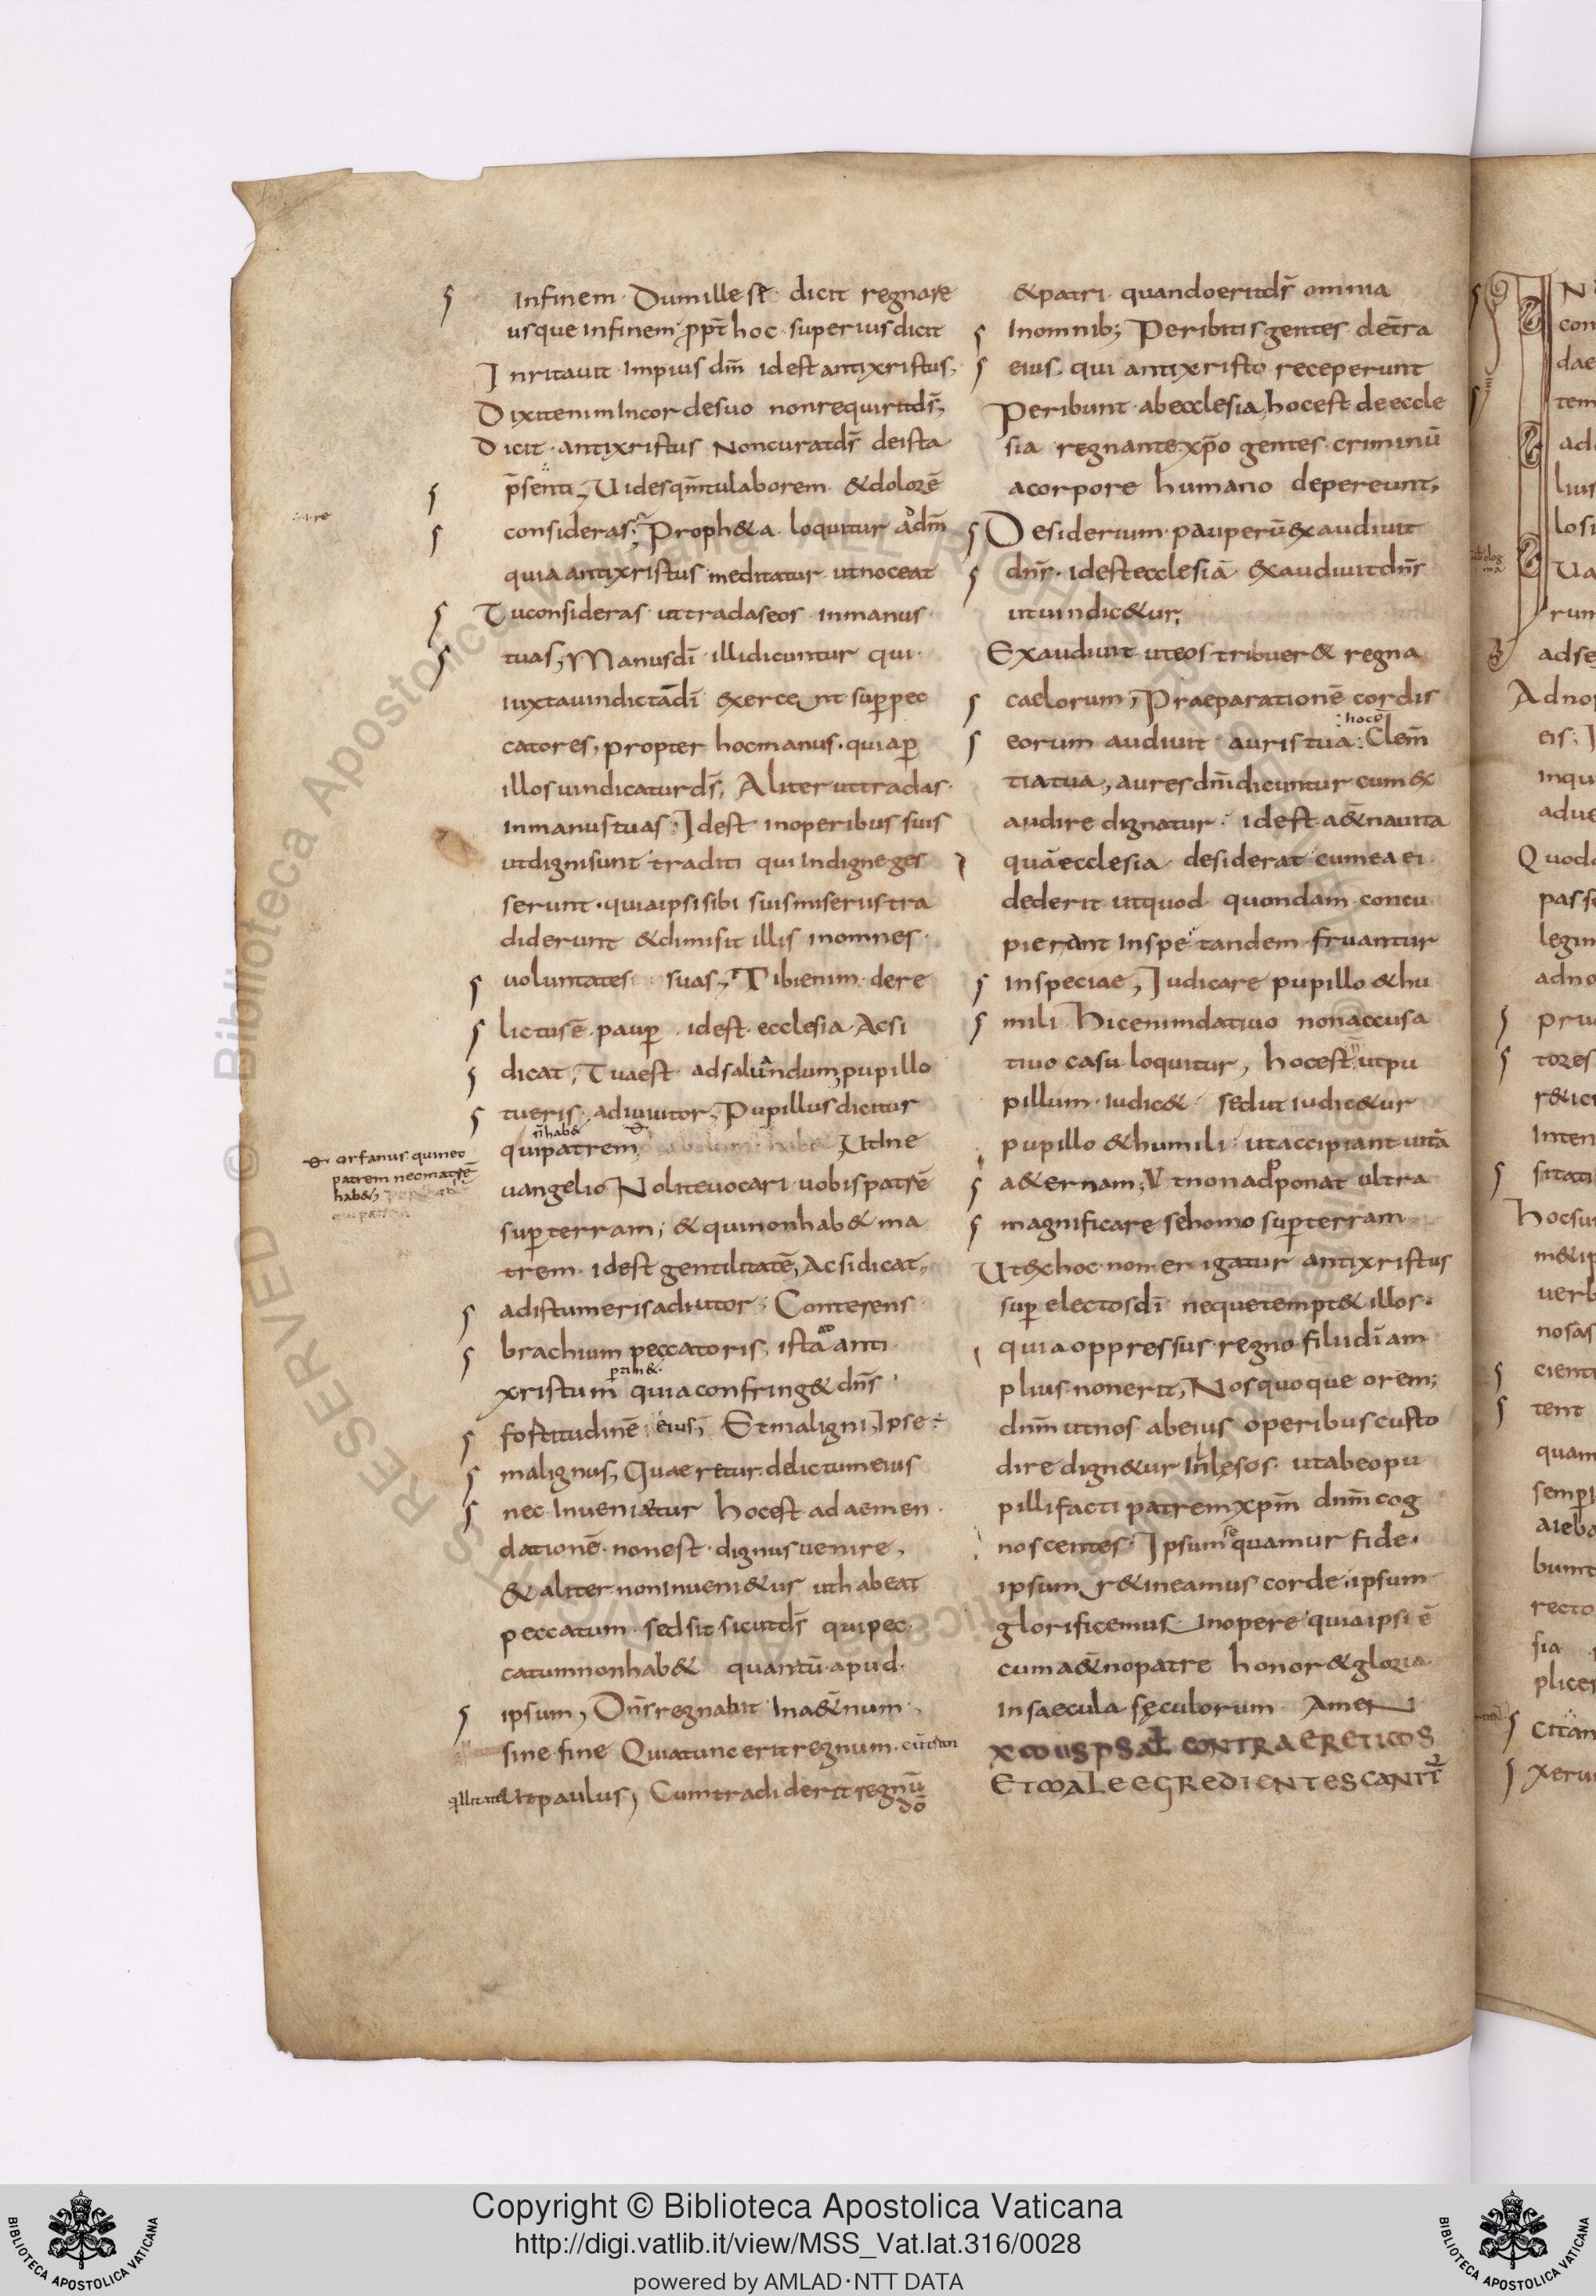 Infinem· Dumille sē· dicit regnare
usque infinem· ꝓpt̄ hoc· superius dicit
Inritauit· Impius dm̄ idest antixristus,
Dixitenim Incordesuo nonrequiritds̄,
Dicit· antixristus Noncuratds̄ deista
p̄senti, Uides qm̄ tulaborem· &dolorē
consideras; Proph&a loquitur addm̄
quia antixristus meditatur· utnoceat
Tuconsideras· uttradaseos· inmanus·
tuas, Manusdī illidicuntur qui·
iuxtauindictādī exercent sup̄pec
catores, propter hocmanus· quiap̄
illosuindicaturds̄, Aliter uttradas·
Inmanustuas, Idest inoperibus suis
utdignisunt traditi qui Indigneges
serunt· quiaipsisibi suismiserustra
diderunt &dimisit illis inomnes·
uoluntates suas, Tibienim dere
lictusē· paup̄ idest· ecclesia· Acsi
dicat, Tuaest· adsaluandum, pupillo
tueris· adiuuitor, Pupillusdicitur
n̄hab&
quipatrem Utine
uangelio Noliteuocari uobispatrē
sup̄terram, &quinonhab& ma
trem· idest gentilitatē, Acsidicat,
adistumerisadiutor, Conterens·
brachium peccatoris, ista anti
xristum quiaconfring& dn̄s
fortitudinē eius, Etmaligni, Ipse÷
malignus, Quaeretur· delictumeius
nec Inueniatur hocest ad aemen·
dationē· nonest· dignusuenire,
& aliter nonInueni&us uthabeat
peccatum· sedsit sicutds̄ quipec·
catumnonhab& quantū· apud·
ipsum, Dn̄sregnabit Ina&̄num·
sine fine Quiatunc eritregnum·
Utpaulus, Cumtradideritregnū
dō
ꝺ· orfanus quinec
patrem necmatrē
hab&,
&patri· quandoeritds̄ omnia
Inomnib; Peribitisgentes· det̄ra
eius, qui antixristo receperunt
Peribunt· abecclesia, hocest deeccle
sia regnantexp̄o gentes· criminū
acorpore humano depereunt,
Desiderium· pauperū exaudiuit
dn̄s· idestecclesiā exaudiuitdn̄s
utuindic&ur,
Exaudiuit uteos tribuer& regna
caelorum, Praeparationē cordis
hocē
eorum audiuit auristua: Clem̄
tiatua, auresdn̄idicuntur cumex
audire dignatur· idest a&̄nauita
quāecclesia desiderat cumea ei·
dederit utquod· quondam· concu
pierant Inspe tandem fruantur
Inspeciae, Iudicare pupillo &hu
mili· hicenimdatiuo nonaccusa
tiuo casu· loquitur, hocest utpu
pillum· iudic& sedut iudic&ur
pupillo &humili· utaccipiant uitā
a&ernam, Vtnonadponat ultra
magnificare sehomo sup̄terram
Utexhoc· nomerigatur antixristus
sup̄ electosdī nequetempt& illos·
quiaoppressus regno filiidī am
pliusnonerit, Nosquoque orem;
dnm̄ utnos abeius operibuscusto
dire dign&ur Inlęsos· utabeopu
pillifacti patremxpm̄ dnm̄cog
noscentes· Ipsum sequamur fide·
ipsum r&ineamus corde, ipsum
glorificemus· Inopere quiaipsi ē
cuma&̄nopatre honor&gloria
Insaecula sęculorum Amen
XOUS PSAL CONTRAERETICOS
ETMALEEGREDIENTESCANIT̄